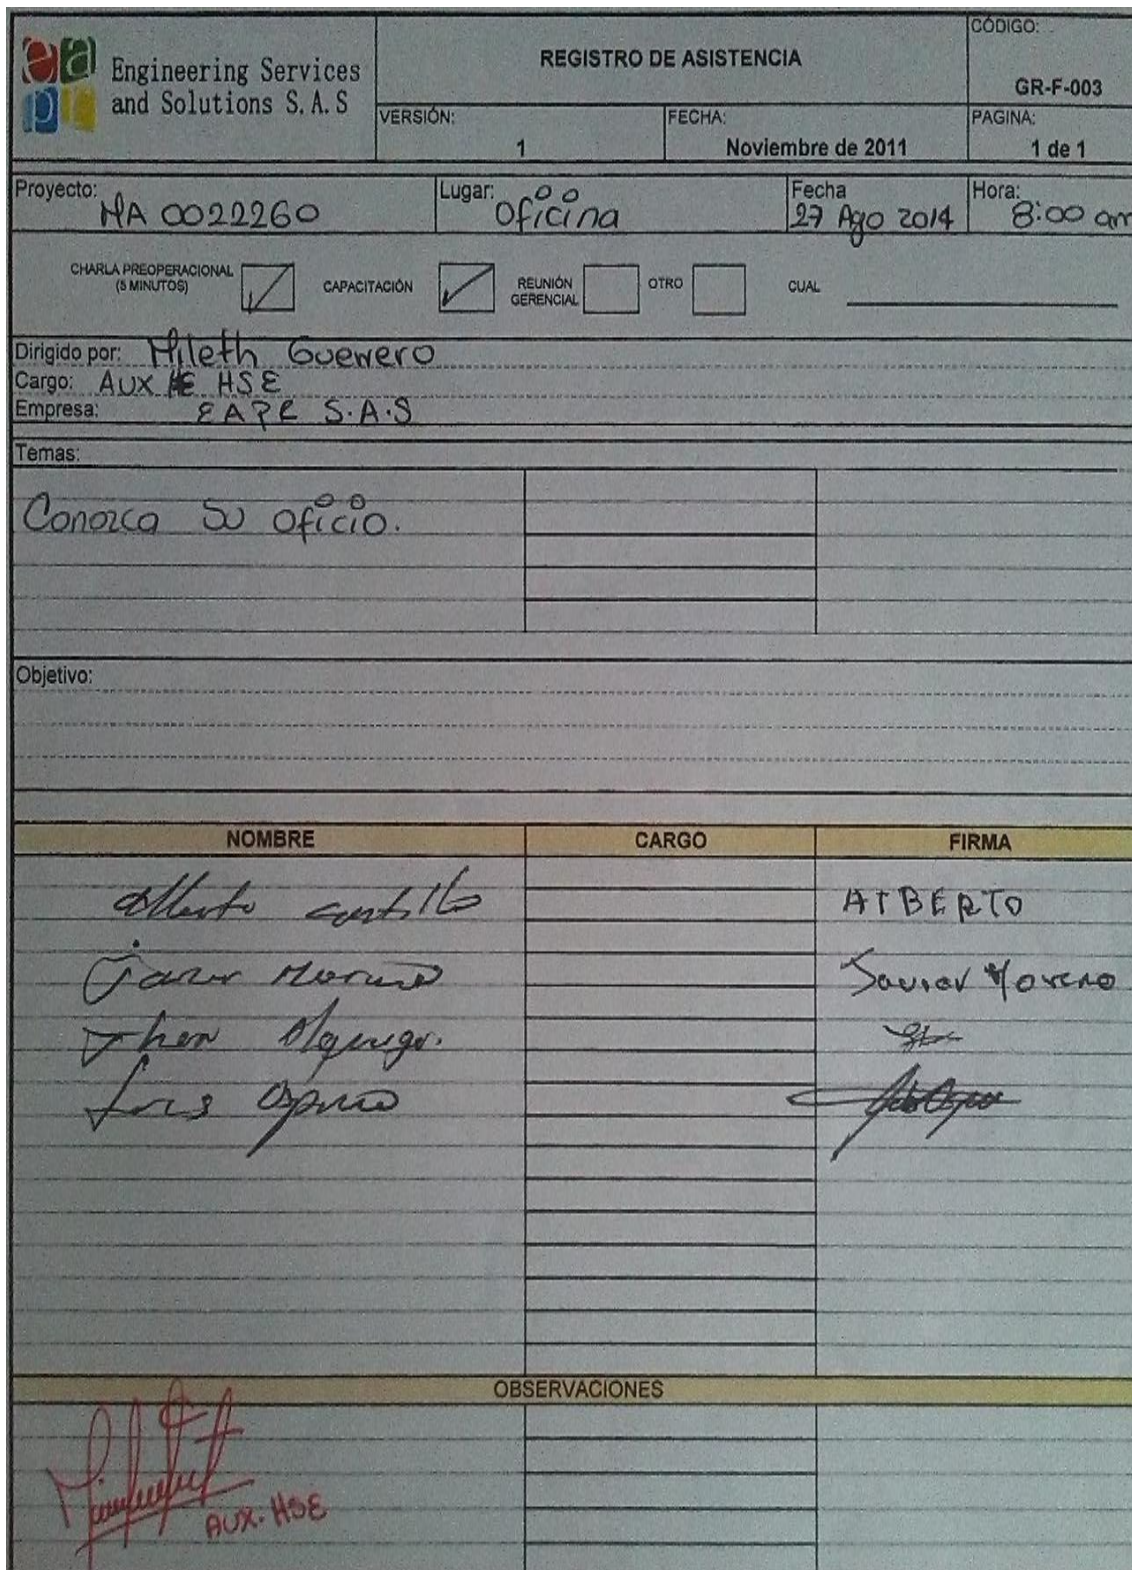 Engineering Services
and Solutions S.A.S
REGISTRO DE ASISTENCIA
CÓDIGO:
GR-F-003
VERSIÓN:
1
FECHA:
Noviembre de 2011
PAGINA:
1 de 1
Proyecto: MA 0022260
Lugar: Oficina
Fecha 27 Ago 2014
Hora: 8:00 am
CHARLA PREOPERACIONAL
(5 MINUTOS)
CAPACITACIÓN
REUNIÓN
GERENCIAL
OTRO
CUAL
Dirigido por: Mileth Guerrero
Cargo: AUX HSE
Empresa: S.A.S
Temas:
Conozca su oficio.
Objetivo:
NOMBRE CARGO FIRMA
Alberto Castillo ALBERTO
Javier Moreno Javier Moreno
Jhon
Luis Ospino
OBSERVACIONES
AUX. HSE